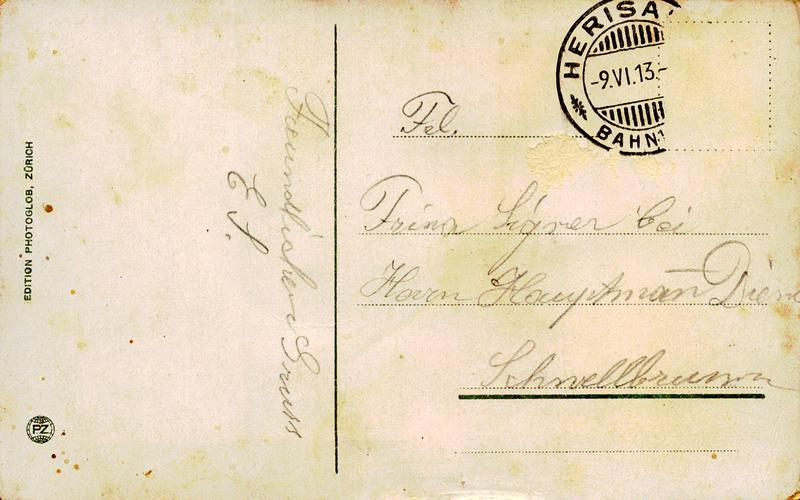 EDITION PHOTOGLOB, ZÜRICH
PZ
Freundlichen Gruss
E. S.
HERISA
-9.VI.13.-
BAHN
Frl.
Frina Signer bei
Herrn Hauptmann
Schwellbrunn